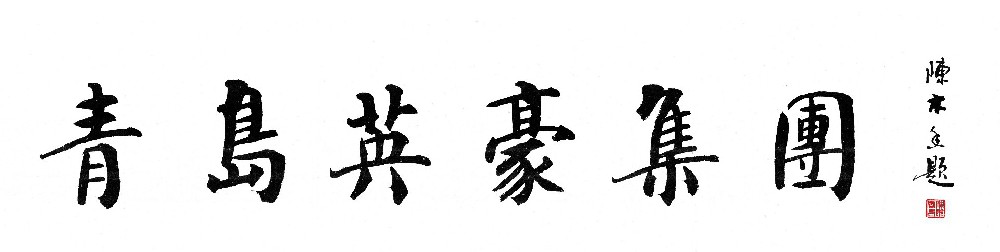 青島英豪集團
陳木全題